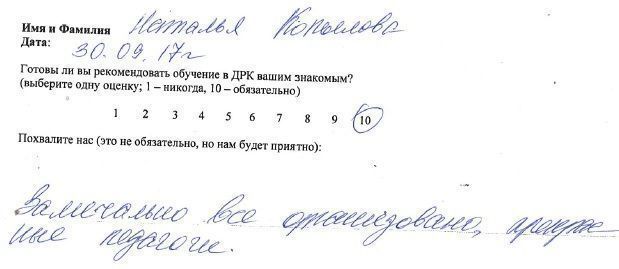 Имя и Фамилия Наталья Копылова
Дата: 30.09.17г
Готовы ли вы рекомендовать обучение в ДРК вашим знакомым?
(выберите одну оценку; 1 – никогда, 10 – обязательно)
1 2 3 4 5 6 7 8 9 10
Похвалите нас (это не обязательно, но нам будет приятно):
Замечально все организовано, прекрас
ные педагоги.